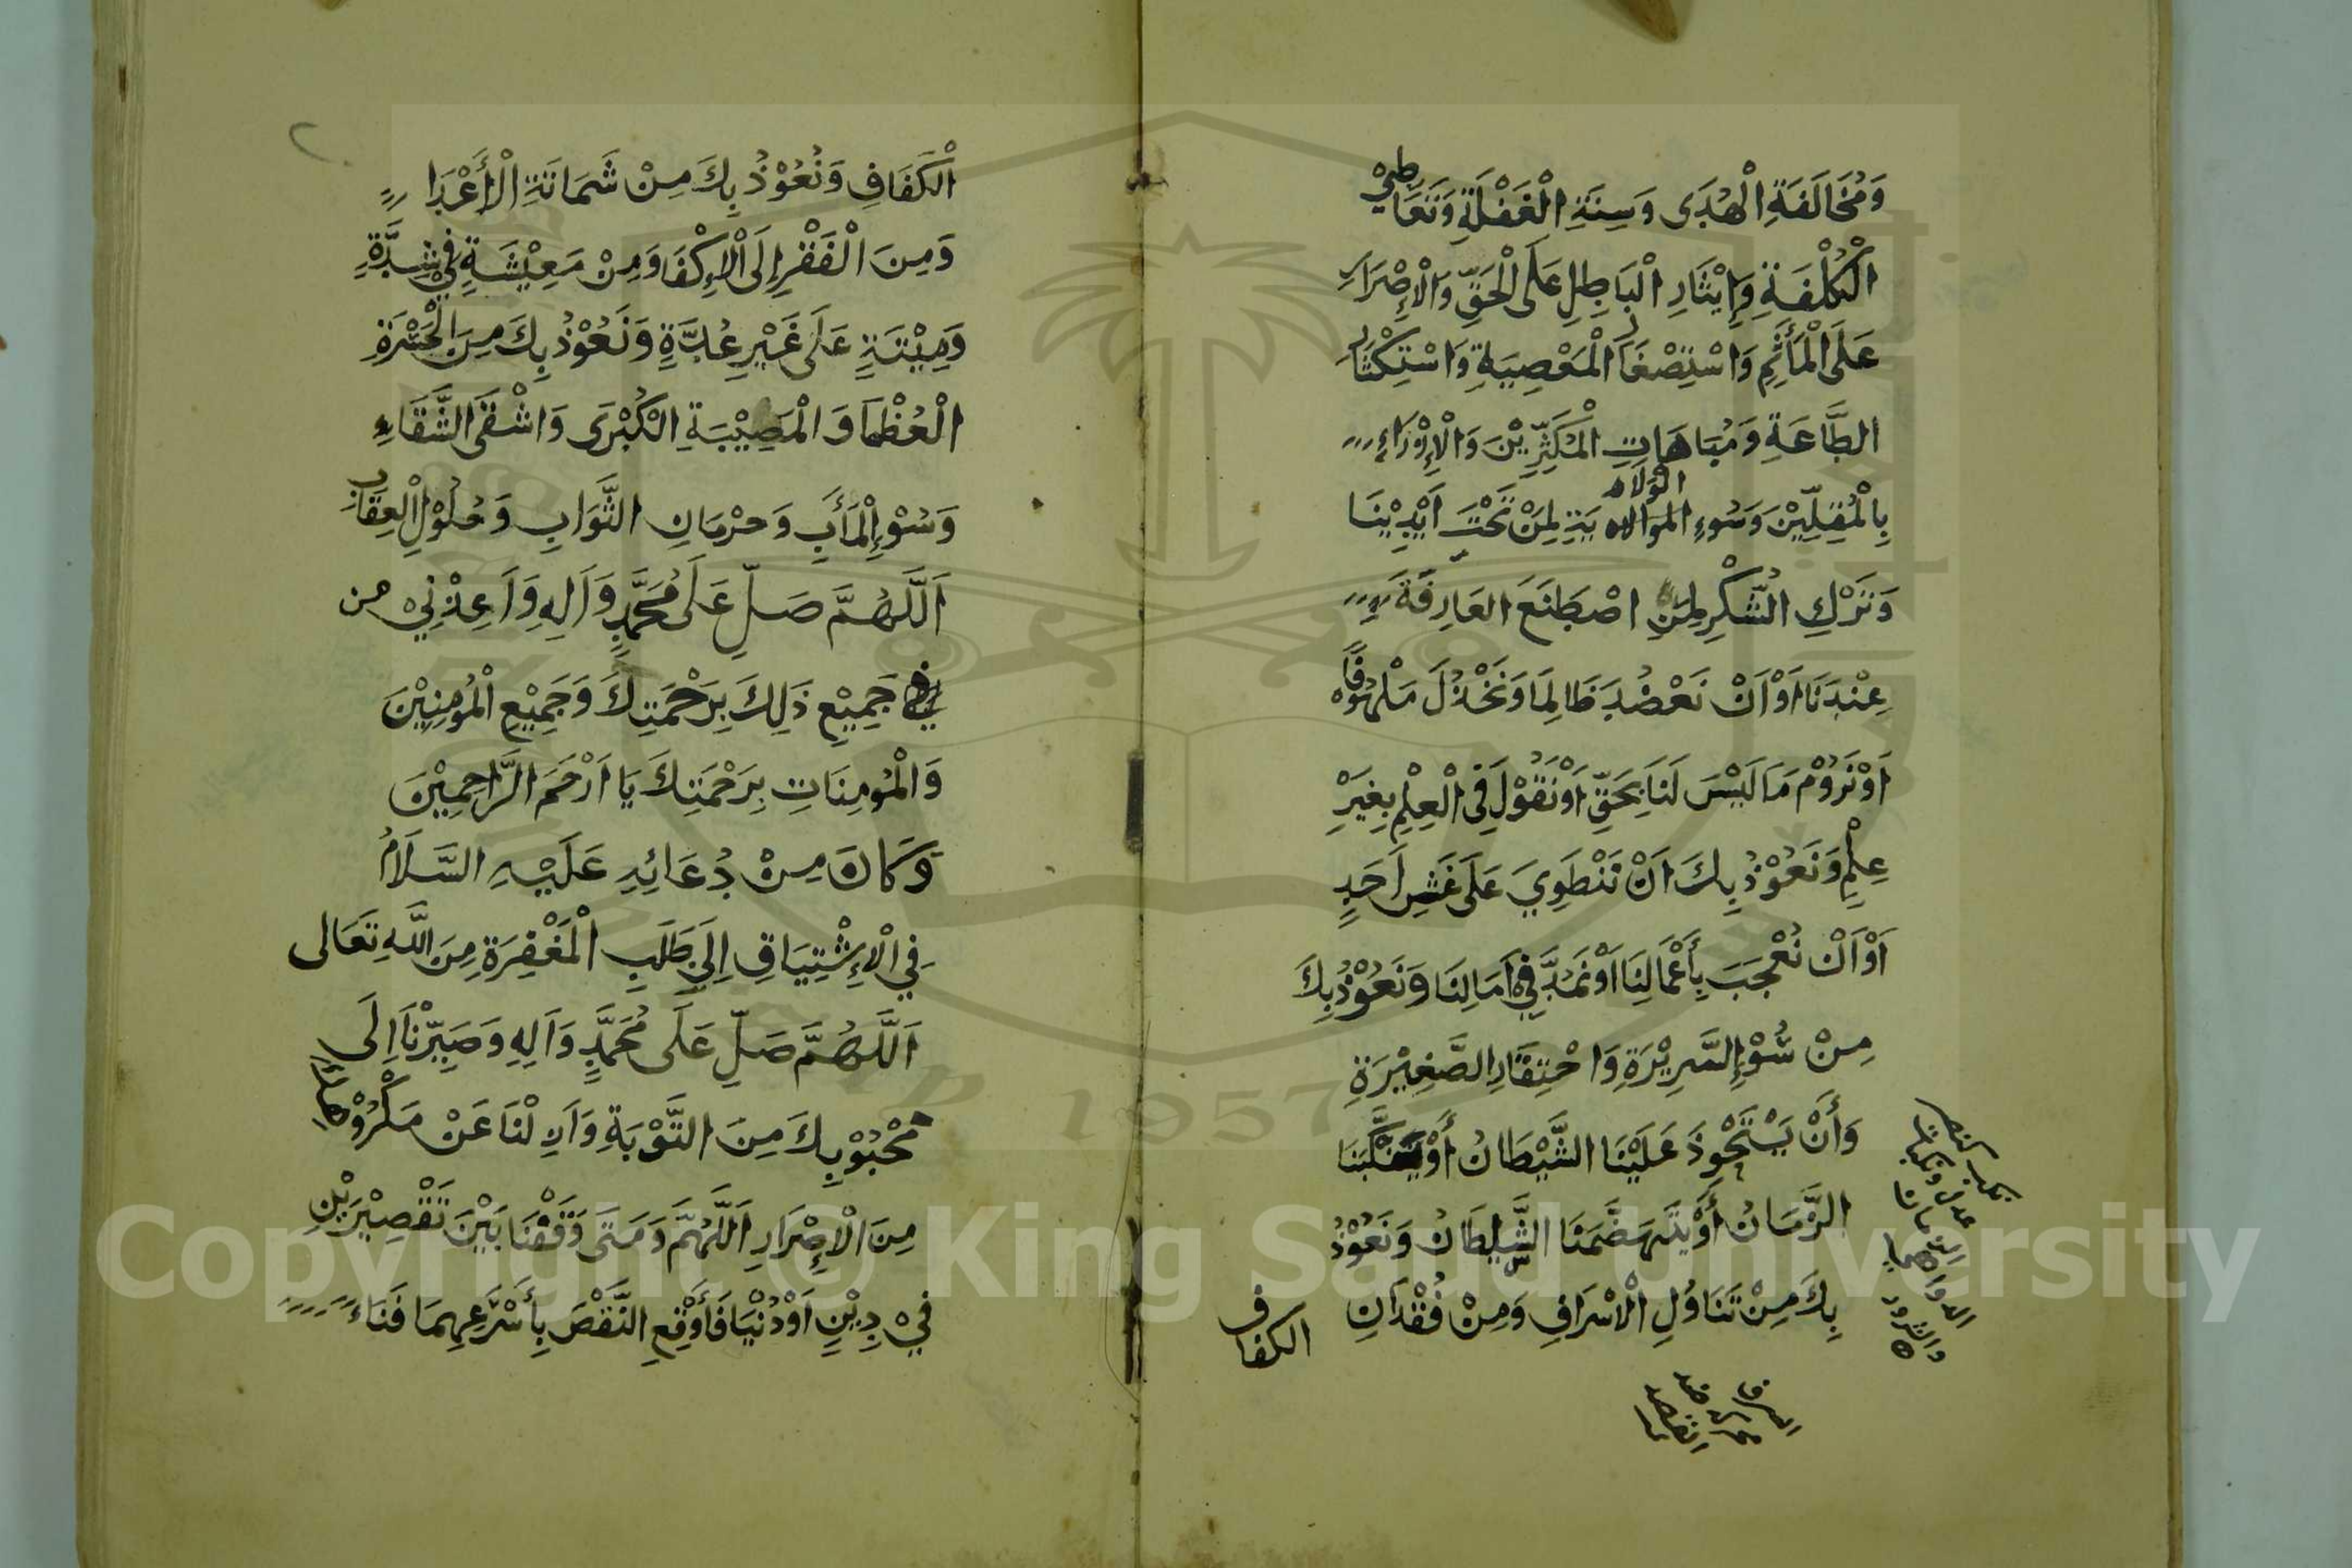 وَمُخَالَفَةِ الْهُدَى وَسِنَةِ الْغَفْلَةِ وَتَعَاطِيْ
الْكُلْفَةِ وَإِيْثَارِ الْبَاطِلِ عَلَى الْحَقِّ وَالْإِصْرَارِ
عَلَى الْمَأْثَمِ وَاسْتِصْغَارِ الْمَعْصِيَةِ وَاسْتِكْثَارِ
الطَّاعَةِ وَمُبَاهَاتِ الْمُكَثِّرِيْنَ وَالْإِزْرَاءِ
بِالْمُقِلِّيْنَ وَسُوءِ الْوِلَايَةِ لِمَنْ تَحْتَ اَيْدِيْنَا
وَتَرْكِ الشُّكْرِ لِمَنِ اصْطَنَعَ العَارِفَةَ
عِنْدَنَا اَوْ اَنْ نَعْضُدَ ظَالِمَا وَنَخْذُلَ مَلْهُوْفًا
اَوْ نَرُوْمَ مَا لَيْسَ لَنَا بِحَقِّ اَوْ نَقُوْلَ فِى الْعِلْمِ بِغَيْرِ
عِلْمٍ وَنَعُوْذُ بِكَ اَنْ نَنْطَوِيَ عَلَى غَشِ اَحَدٍ
اَوْ اَنْ نُعْجَبَ بِأَعْمَالِنَا اَوْ نَمُدَّ فِيْ اَمَالِنَا وَنَعُوْذُ بِكَ
مِنْ سُوْءِ السَّرِيْرَةِ وَاحْتِقَارِ الصَّغِيْرَةِ
وَأَنْ يَسْتَحْوِذَ عَلَيْنَا الشَّيْطَانُ أَوْ يَنْكُبَنَا
الزَّمَانُ أَوْ يَتَهَضَّمَنَا السُّلْطَانُ وَنَعُوْذُ
بِكَ مِنْ تَنَاوُلِ الْاسْرَافِ وَمِنْ فُقْدَانِ
الكفاف
الْكَفَافِ وَنُعُوْذُ بِكَ مِنْ شَمَاتَةِ الْأَعْدَا
وَمِنَ الْفَقْرِ اِلَى الْاِكْفَا وَمِنْ مَعِيْشَةٍ فِيْ شِدَّةٍ
وَمِيْتَةٍ عَلَى غَيْرِ عُدَّةٍ وَنَعُوْذُ بِكَ مِنَ الْحَسْرَةِ
الْعُظْمَا وَالْمُصِيْبَةِ الْكُبْرَى وَاشْقَى الشَّقَاءِ
وَسُوْءِ الْمَأَبِ وَحرْمَانِ الثَّوَابِ وَحُلُوْلِ الْعِقَابِ
اَللَّهُمَّ صَلِّ عَلَى مُحَمَّدٍ وَاَلِهِ وَاَعِذْنِيْ من
جَمِيْعِ ذَلِكَ بِرَحْمَتِكَ وَجَمِيْعِ الْمُؤْمِنِيْنَ
وَالْمُؤْمِنَاتِ بِرَحْمَتِكَ يَا اَرْحَمَ الرَّاحِمِيْنَ
وَكَانَ مِنْ دُعَائِهِ عَلَيْهِ السَّلَامُ
فِي الْاِشْتِيَاقِ اِلَى طَلَبِ الْمَغْفِرَةِ مِنَ اللَّهِ تَعَالى
اَللَّهُمَّ صَلِّ عَلَى مُحَمَّدٍ وَاَلِهِ وَصَيِّرْنَا اِلَى
مَحْبُوْبِكَ مِنَ التَّوْبَةِ وَاَزِلْنَا عَنْ مَكْرُوْهِكَ
مِنَ الْاِصْرَارِ اَللَّهُمَّ وَمَتَى وَقَفْنَا بَيْنَ نَقْصِيْرَيْنِ
فِيْ دِيْنٍ اَوْ دُنْيَا فَأَوْقِعِ النَّقْصَ بِأَسْرَعِهِمَا فَنَاءً
Copyright © King Saud University
1957